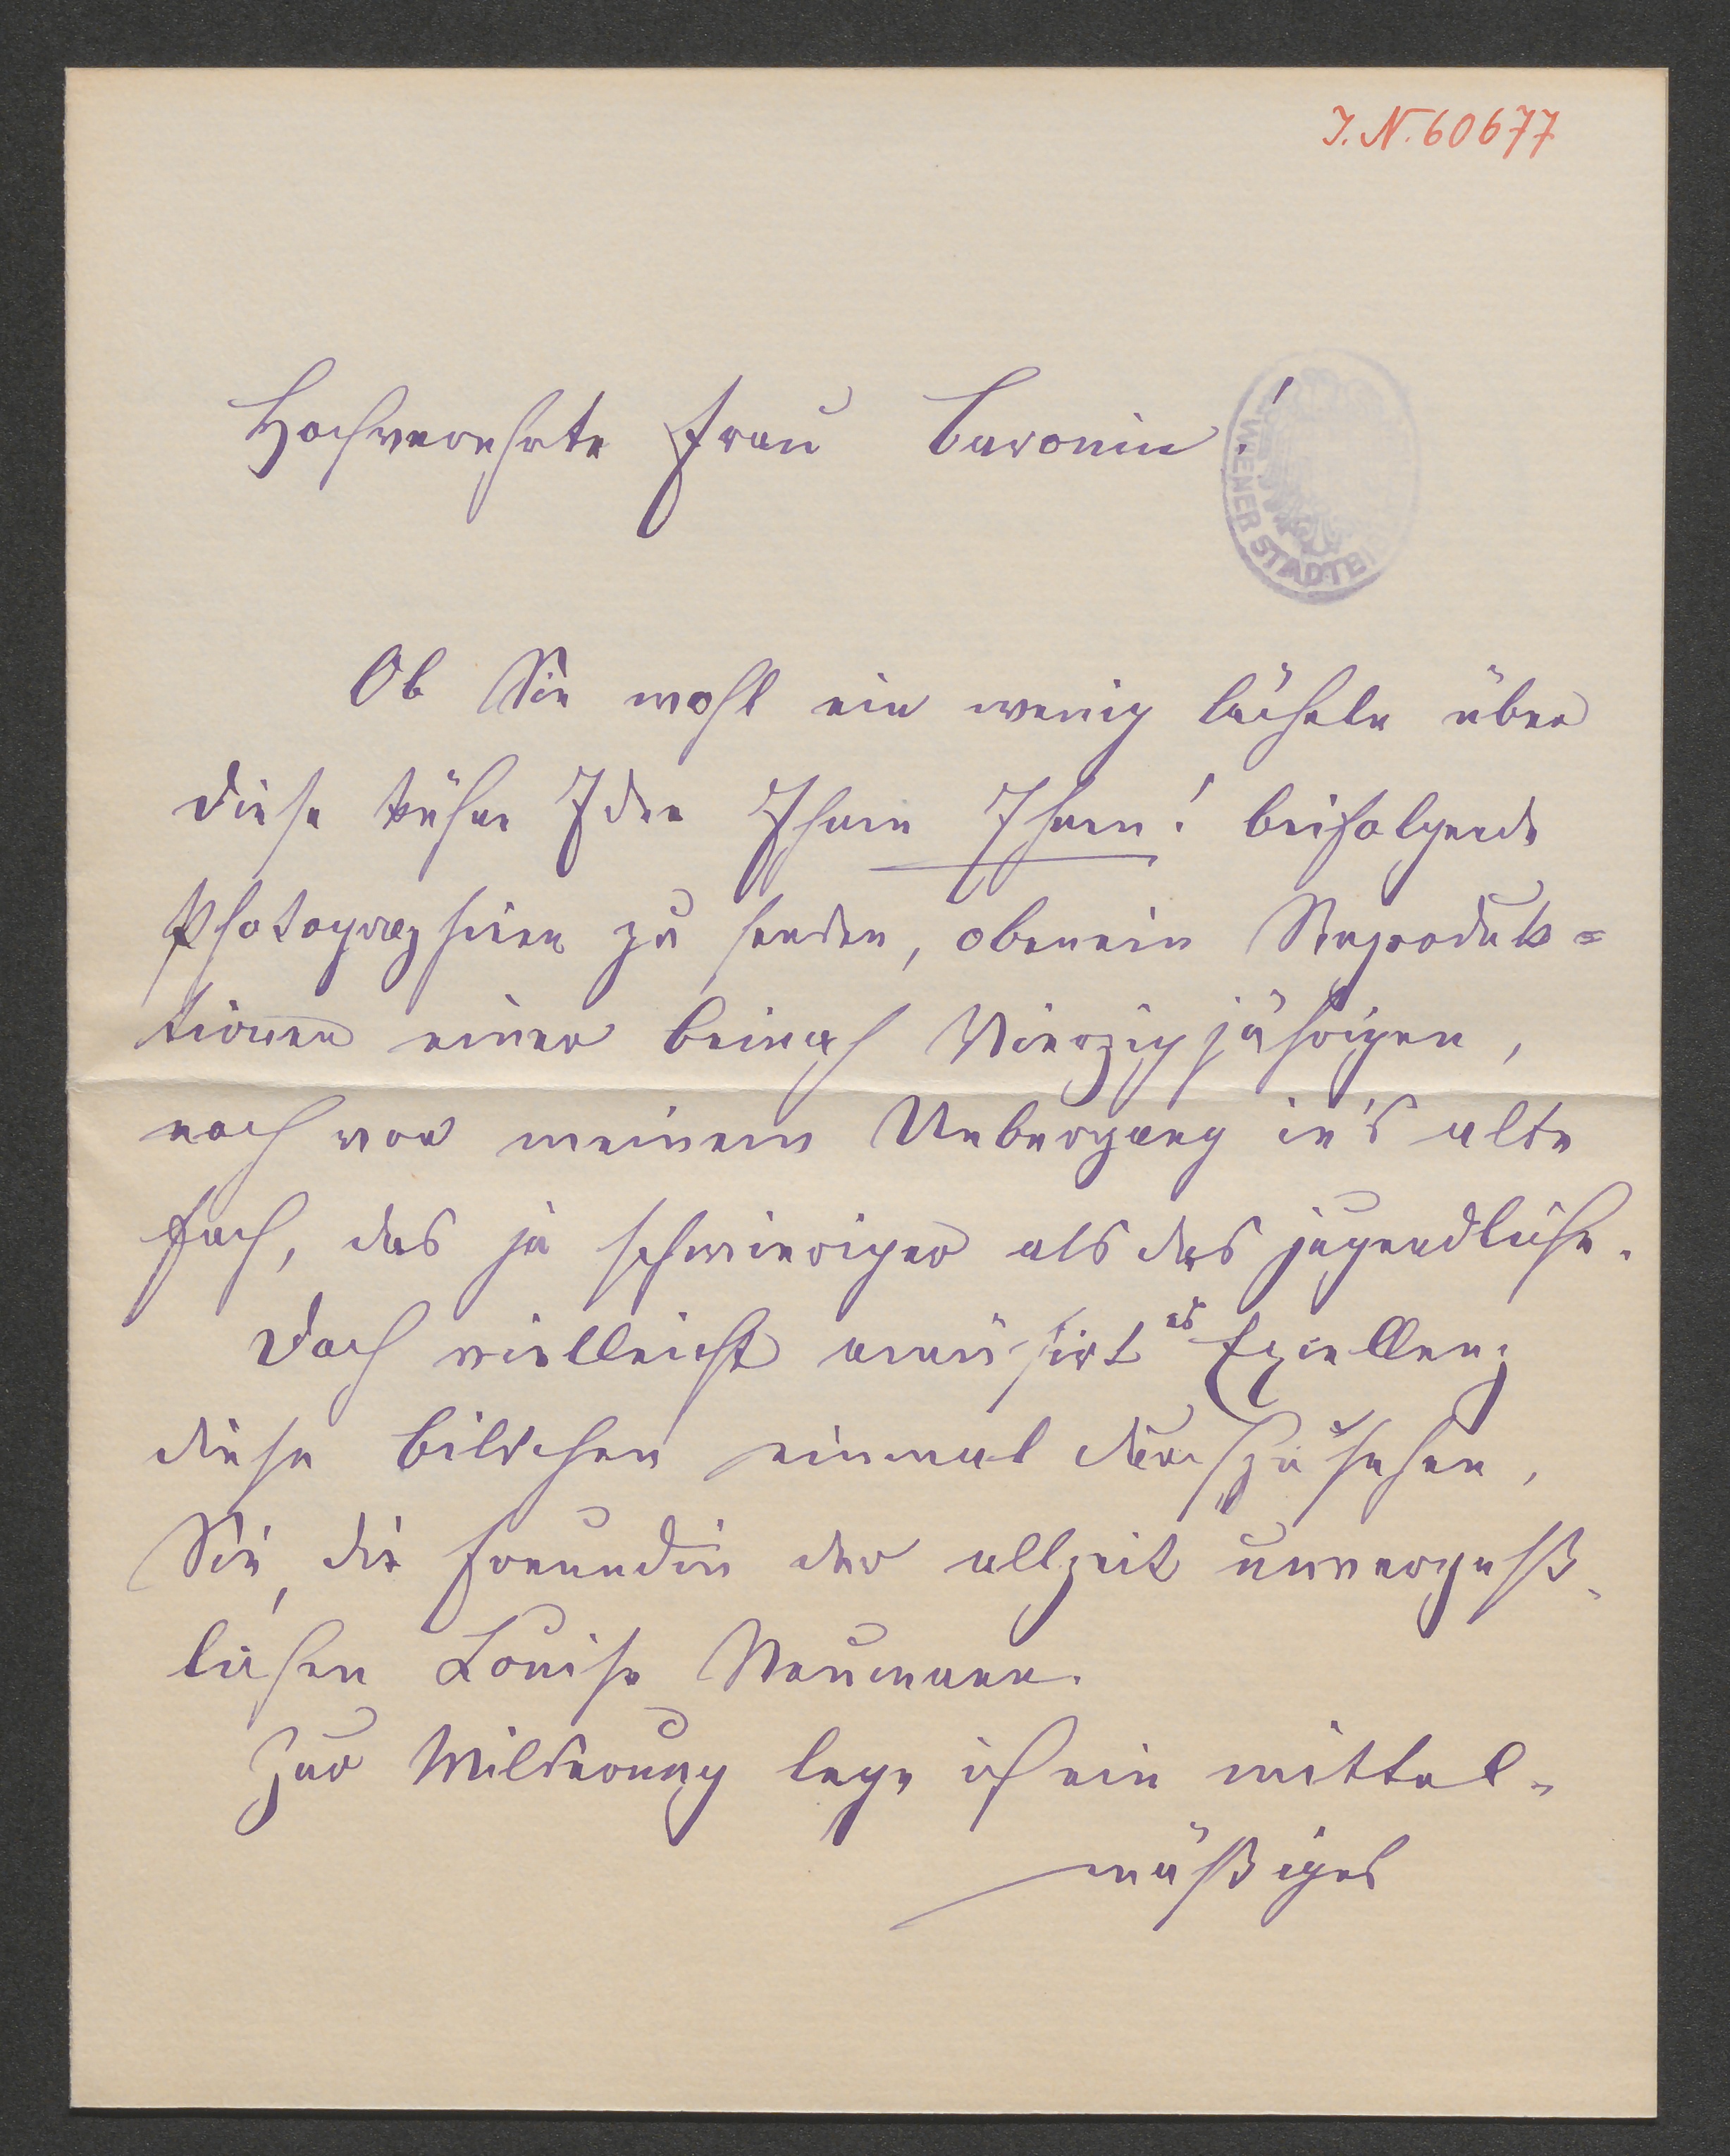 I. N. 60677
Hochverehrte Frau Baronin!
WIENER STADTBI
Ob Sie wohl ein wenig lächeln über
diese kühne Idee Ihnen Ihnen! beifolgende
Photographien zu senden, obenein Reproduk=
tionen einer beinah Vierzigjährigen,
noch vor meinem Uebergang in's alte
Fach, das ja schwieriger als das jugendliche.
Doch vielleicht amüsirt es Exzellenz
diese Bildchen einmal durchzusehen,
Sie, die Freundin der allzeit unvergeß-
lichen Louise Neumann.
Zur Milderung lege ich ein mittel-
mäßiges